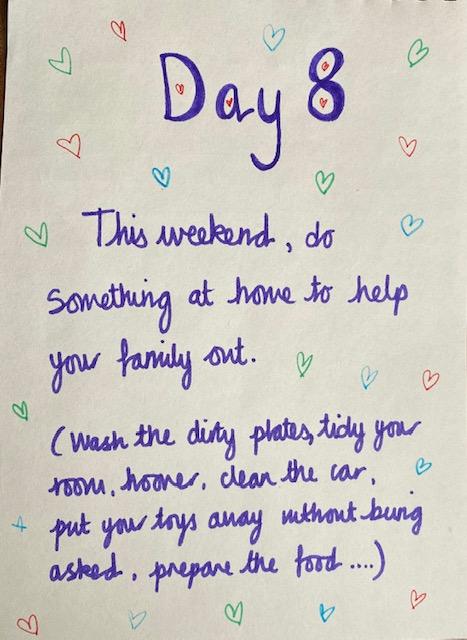 Day 8
This weekend, do
something at home to help
your family out.
(Wash the dirty plates, tidy your
room, hoover, clean the car,
put your toys away without being
asked, prepare the food ....)